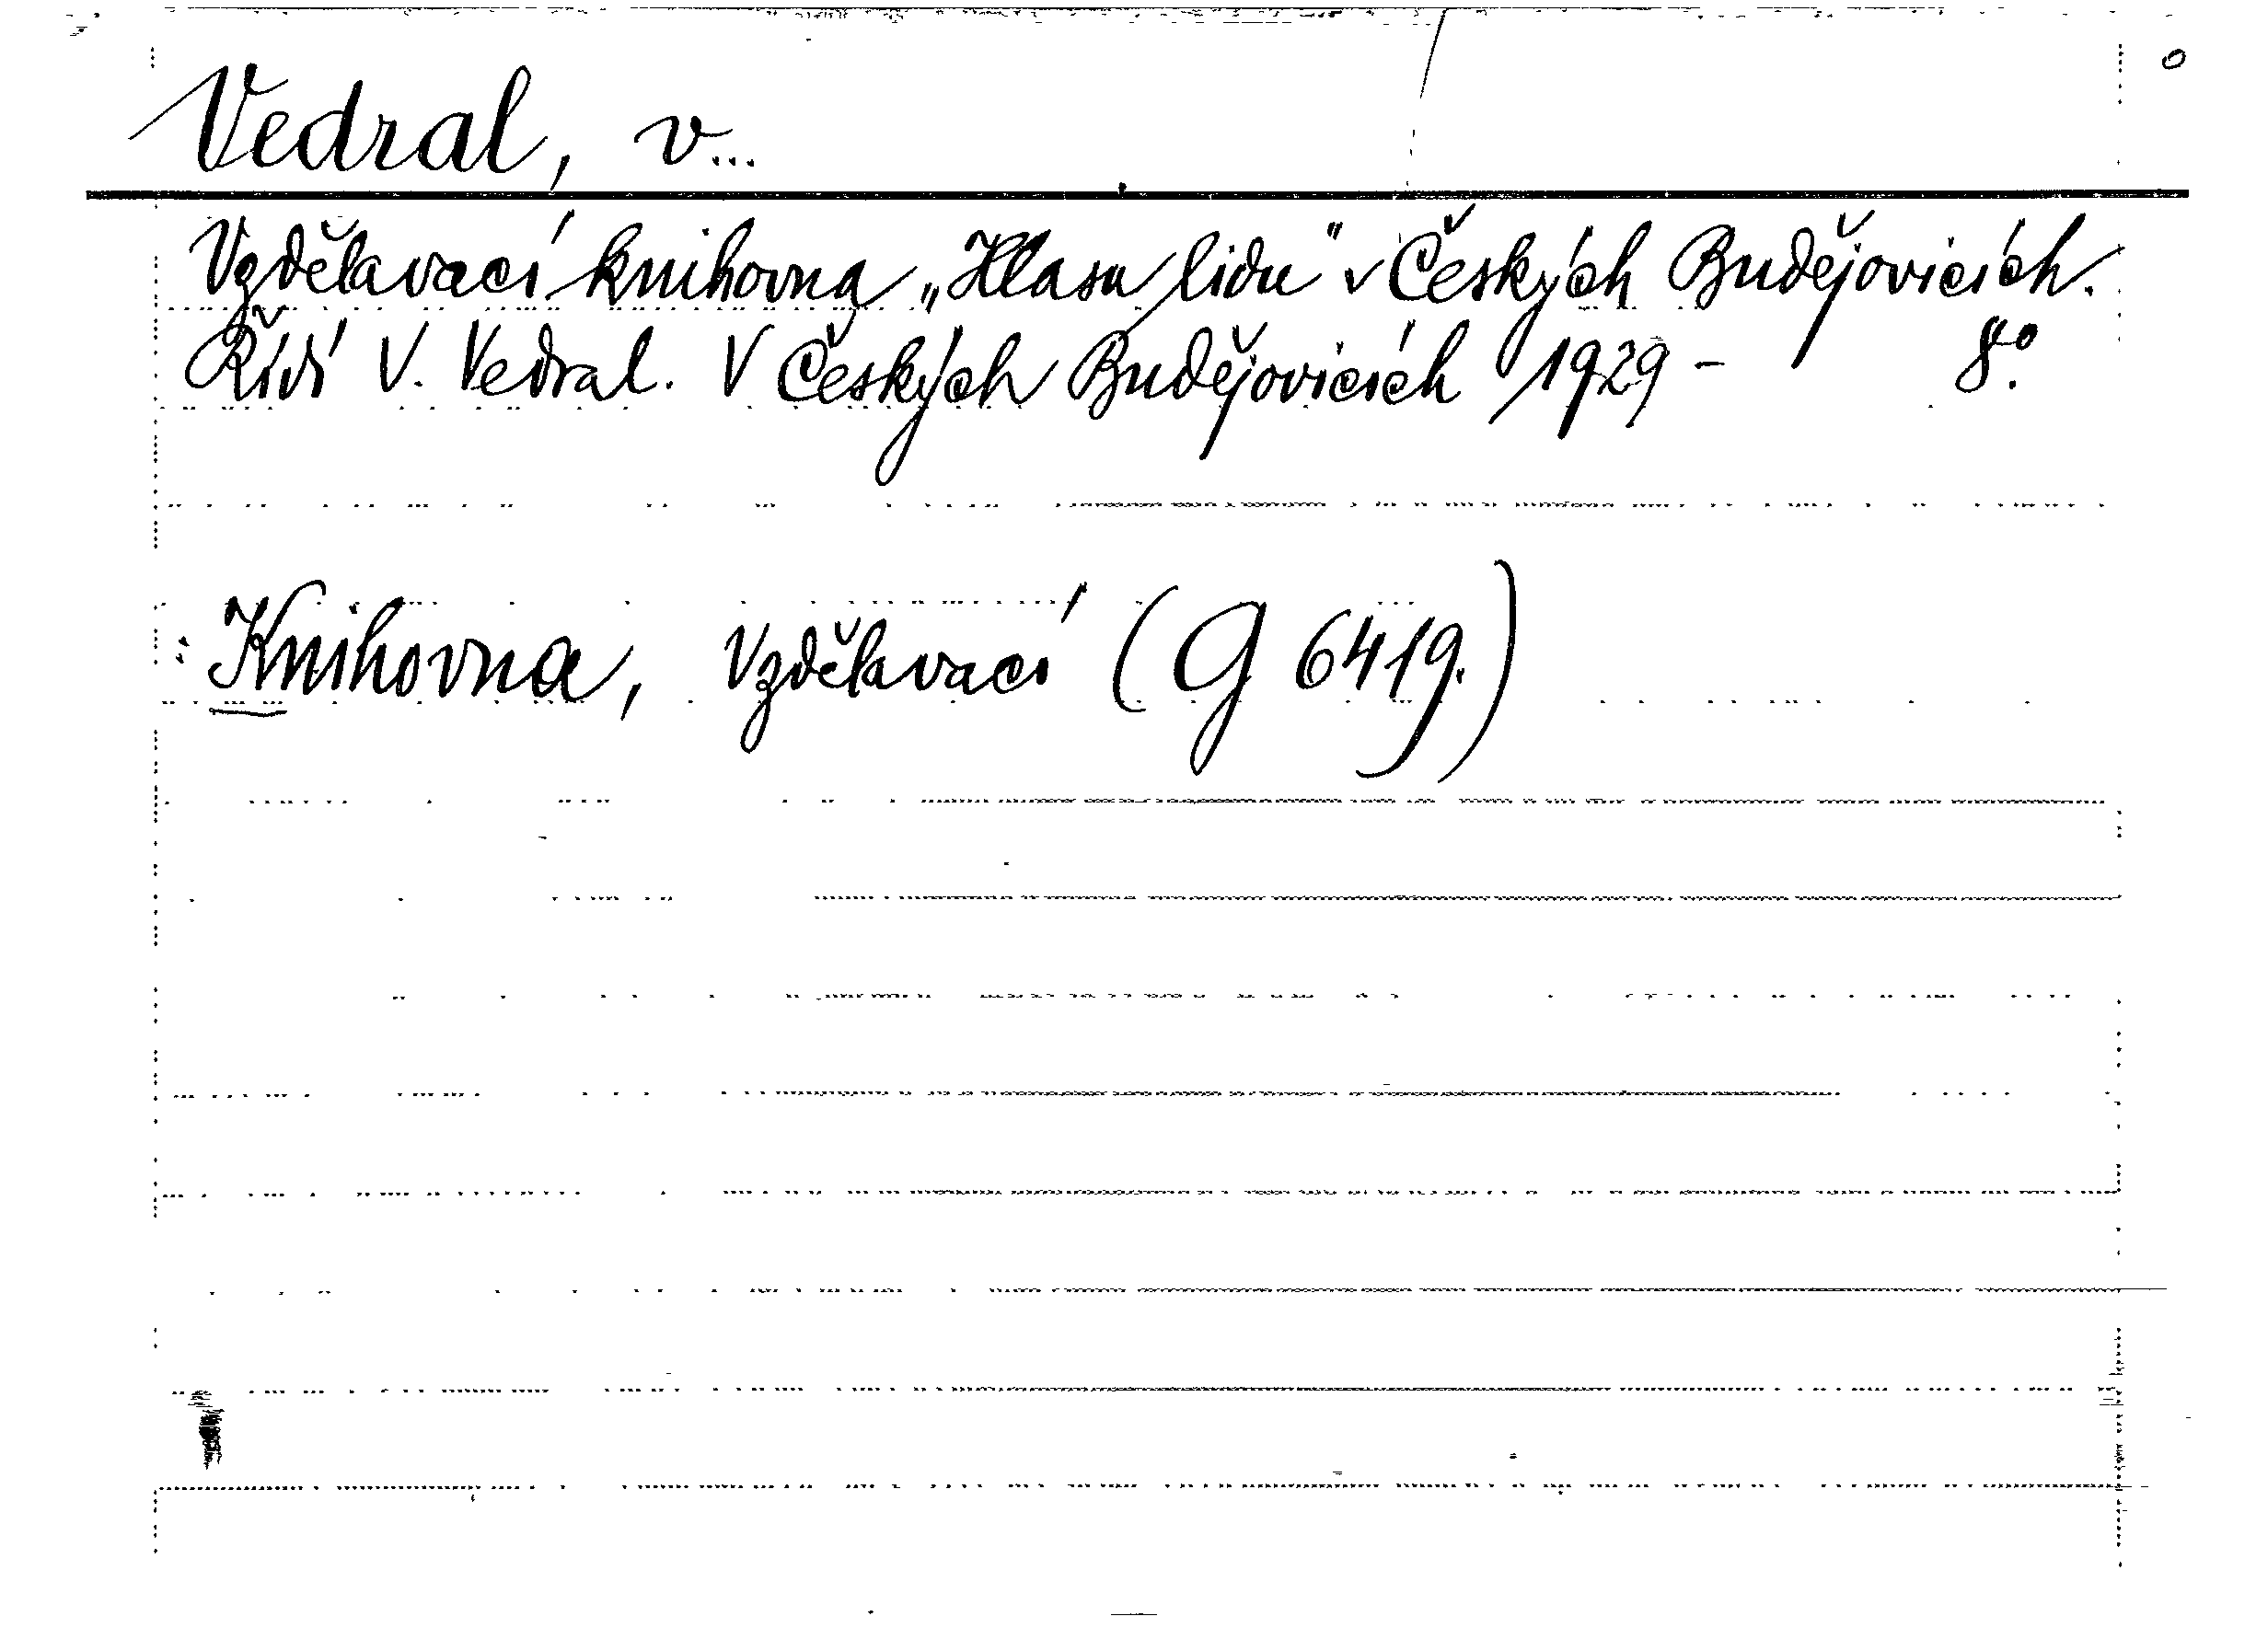 Vedral, V...
Vzdělavací knihovna „Hlasu lidu" v Českých Budějovicích.
Řídí V. Vedral. V Českých Budějovicích 1929 - 8°.
: Knihovna, Vzdělavací (G 6419.)